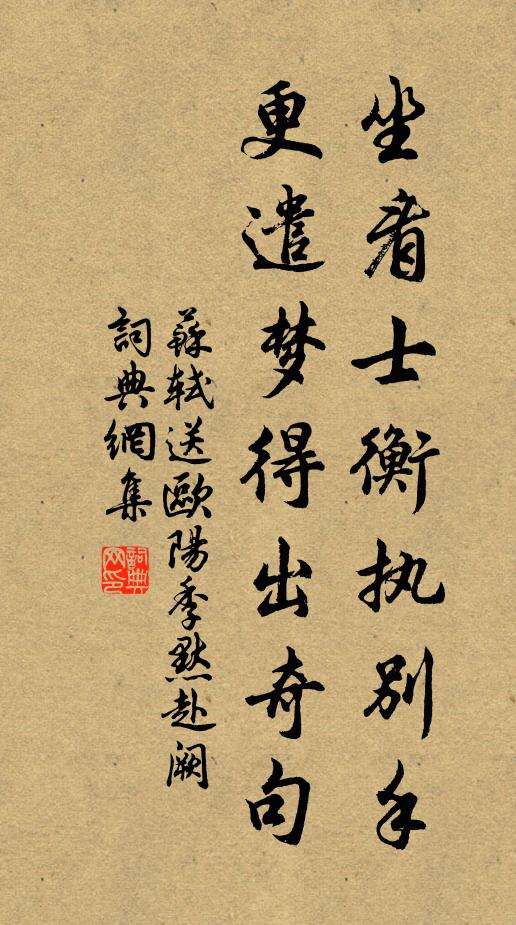 坐看士衡执别手
更遣梦得出奇句
蘇軾送歐陽季默赴闕
詞典網集
詞典網印